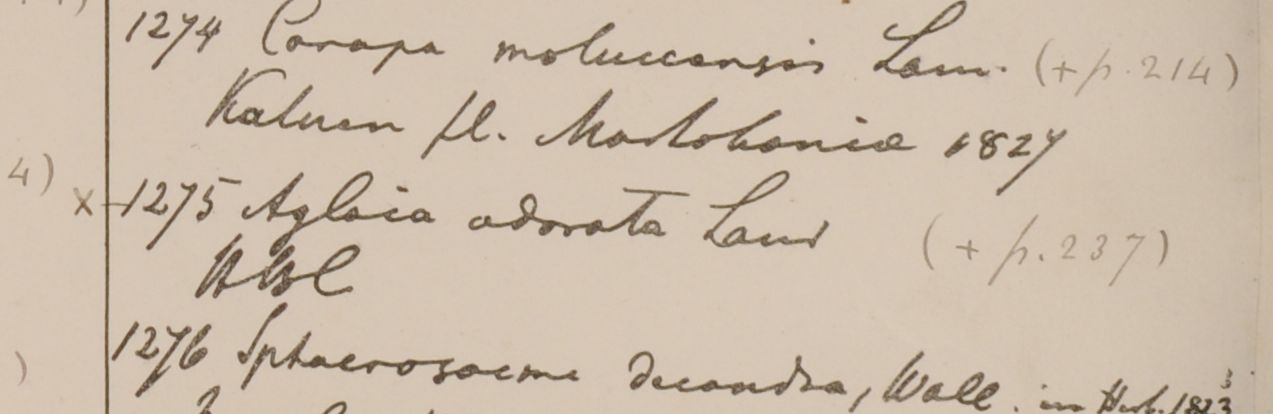 1274 Carapa moluccensis Lam. (+ p. 214)
fl. Martobania 1827
4) x 1275 Aglaia odorata Lour (+ p. 237)
HBC
1276 Sphaerosacme decandra, Wall. in Herb. 1823
)